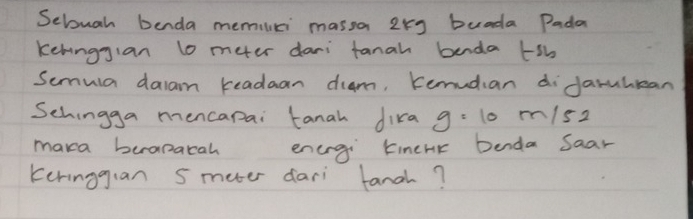 Sebuah benda memiliki massa 2kg berada Pada
Ketinggian 10 meter dari tanah benda tsb
Semula dalam keadaan diam, kemudian dijatuhkan
Sehingga mencapai tanah jika g = 10 m/s2
maka berapakah energi kinetik benda saat
Ketinggian 5 meter dari tanah?